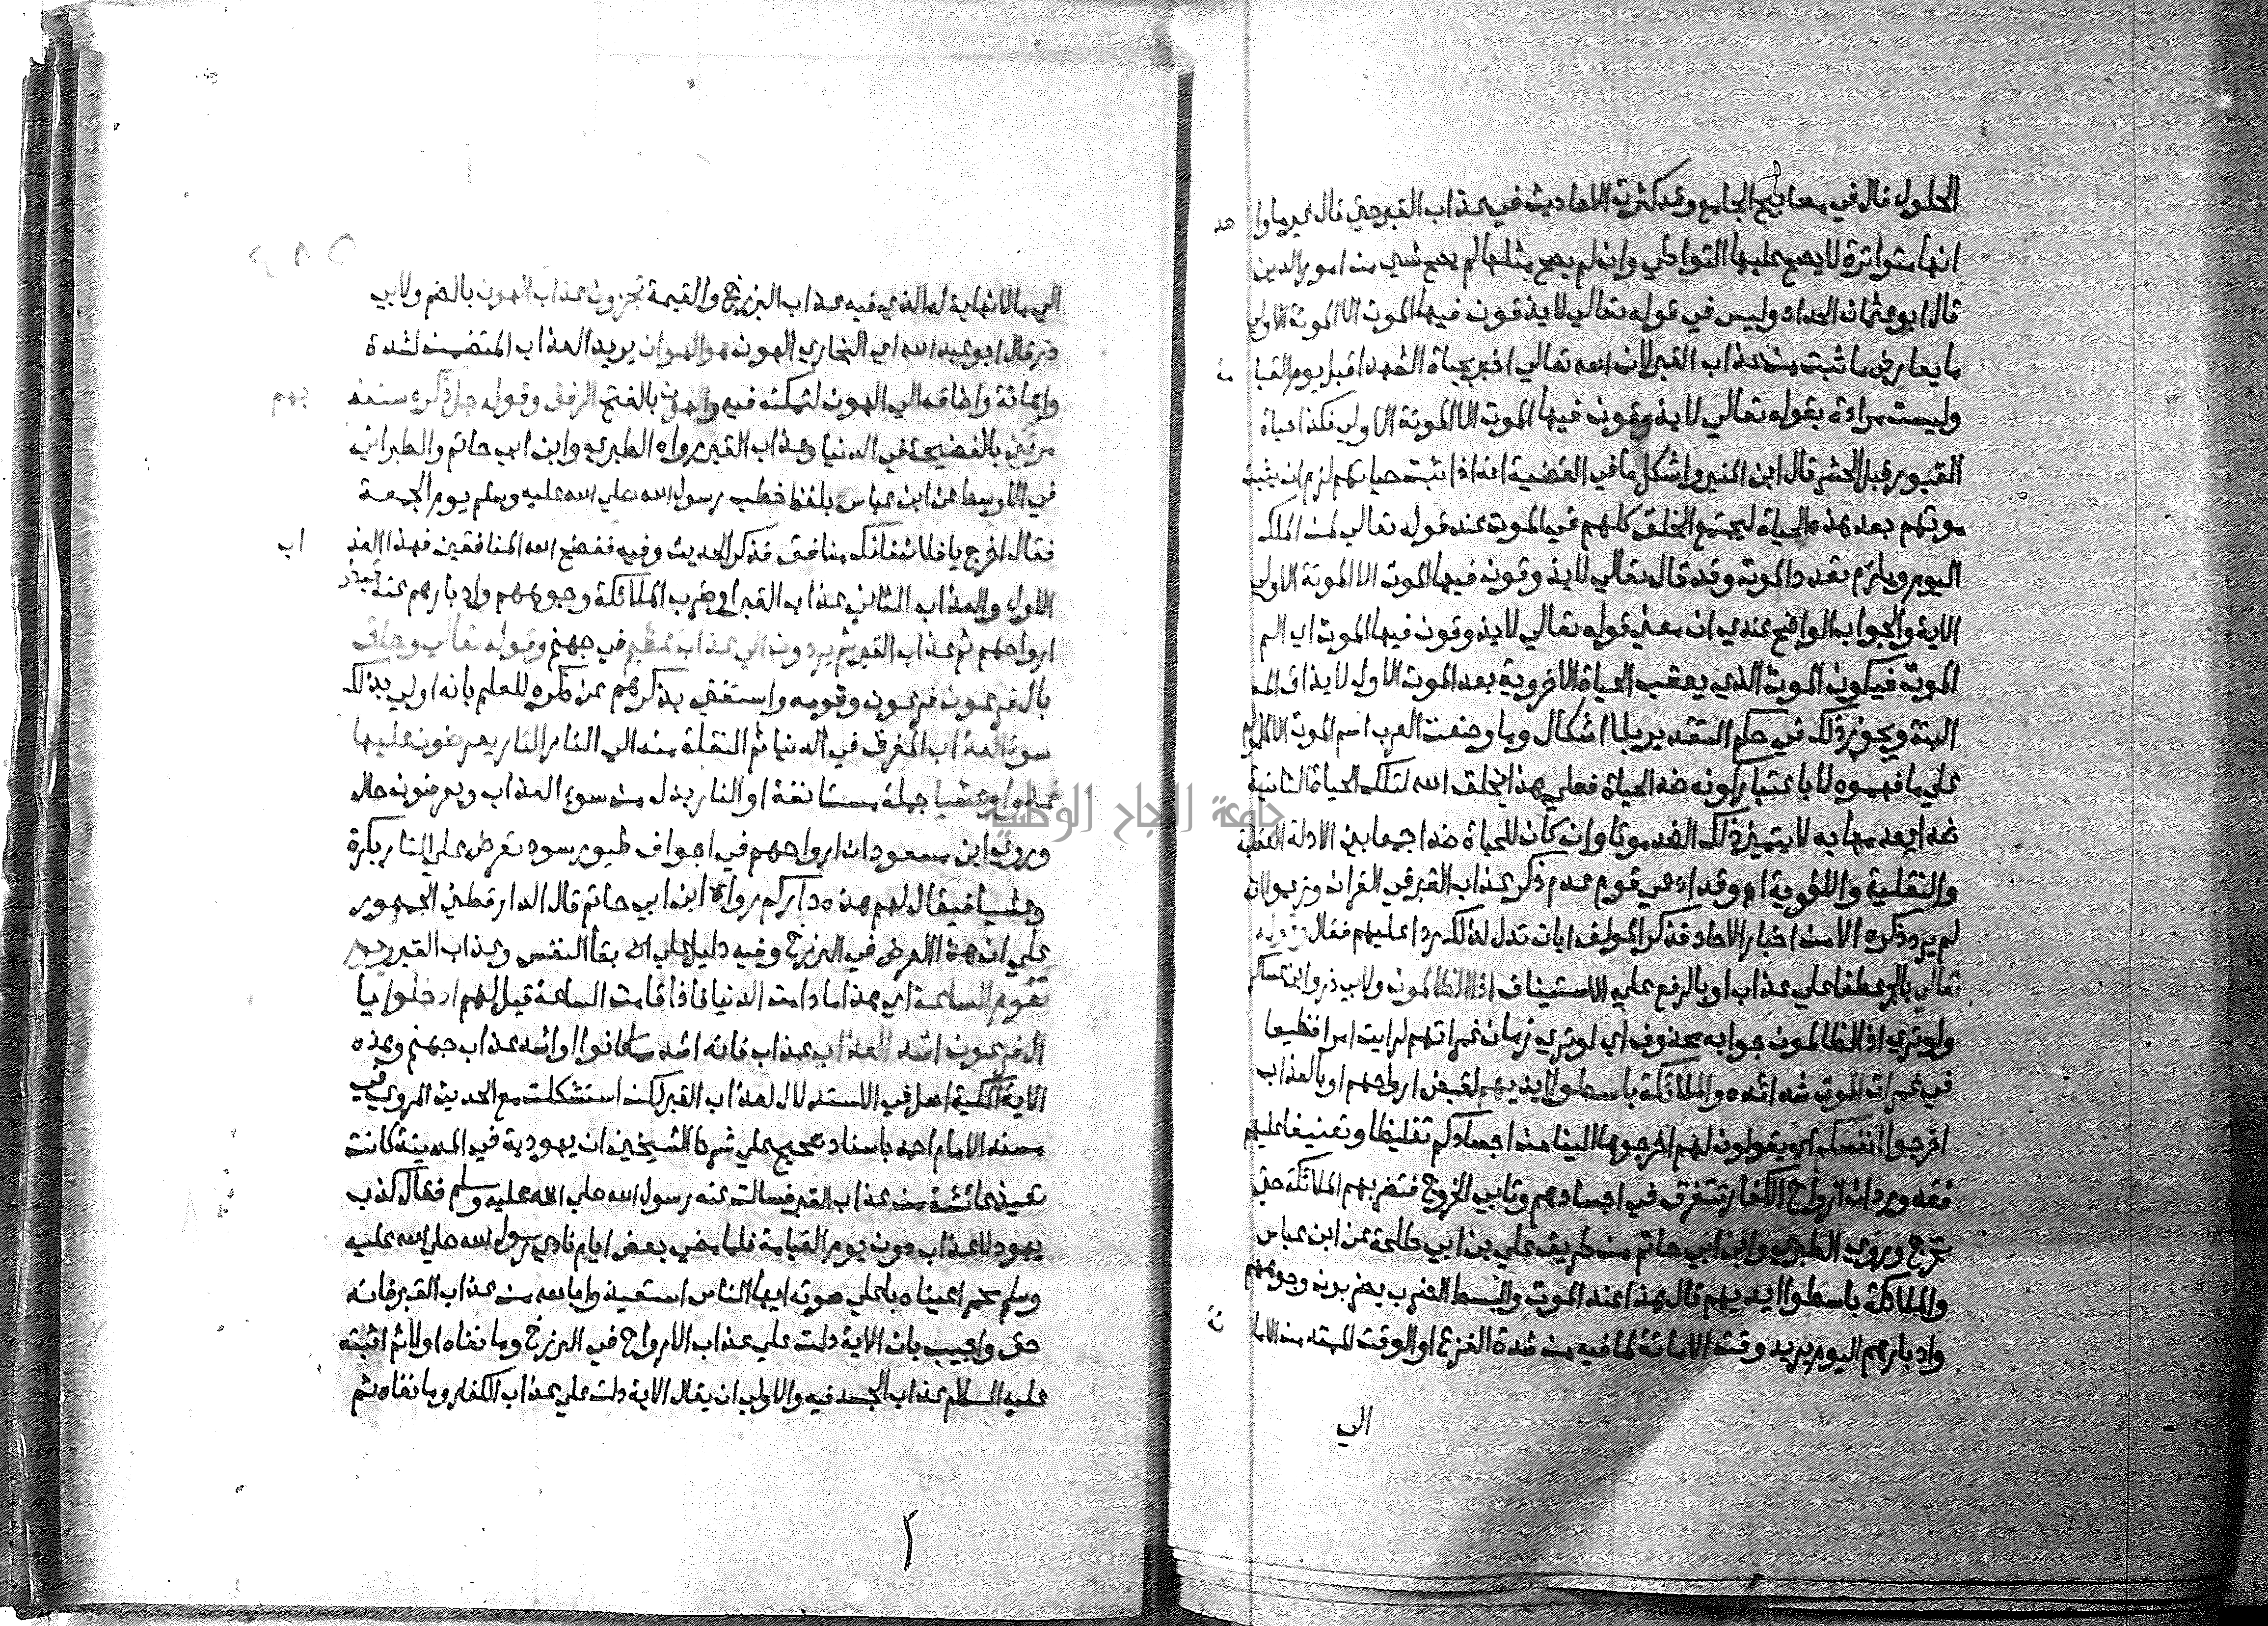 الحلول قال في مصابيح الجامع وقد كثرت الاحاديث في عذاب القبر حتي قال غير واحد
انها متواترة لا يصح عليها التواطي وان لم يصح مثلها لم يصح شي من امور الدين
قال ابو عثمان الحداد وليس في قوله تعالي لا يذوقون فيها الموت الا الموتة الاولي
ما يعارض ما ثبت من عذاب القبر لان الله تعالي اخبر بحياة الشهدا قبل يوم القيامة
وليست مرادة بقوله تعالي لا يذوقون فيها الموت الا الموتة الاولي فكذا حياة
القبور قبل الحشر قال ابن المنير واشكل ما في القضية انه اذا ثبت حياتهم لزم ان يثبت
موتهم بعد هذه الحياة ليجتمع الخلق كلهم في الموت عند قوله تعالي لمن الملك
اليوم ويلزم تعدد الموت وقد قال تعالي لا يذوقون فيها الموت الا الموتة الاولي
الاية والجواب الواضح عندي ان معني قوله تعالي لا يذوقون فيها الموت اي الم
الموت فيكون الموت الذي يعقب الحياة الاخروية بعد الموت الاول لا يذاق المه
البتة ويجوز ذلك في حكم التقدير بلا اشكال وما وضعت العرب اسم الموت الا للمولم
علي ما فهموه لا باعتبار كونه ضد الحياة فعلي هذا يخلق الله لتلك الحياة الثانية
ضدا يعدمها به لا يسمي ذلك الضد موتا وان كان للحياة ضدا جمعا بين الادلة العقلية
والنقلية واللغوية اه وقد ادعي قوم عدم ذكر عذاب القبر في القران وزعموا انه
لم يرد ذكره الا من اخبار الاحاد فذكر المولف ايات تدل لذلك ردا عليهم فقال وقوله
تعالي بالجر عطفا علي عذاب او بالرفع علي الاستيناف اذ الظالمون ولابي ذر وابن عساكر
ولو تري اذ الظالمون جوابه محذوف اي لو تري زمان غمراتهم لرايت امرا فظيعا
في غمرات الموت شدائده والملائكة باسطوا ايديهم لقبض ارواحهم او بالعذاب
اخرجوا انفسكم اي يقولون لهم اخرجوها الينا من اجسادكم تغليظا وتعنيفا عليهم
فقد ورد ان ارواح الكفار تتفرق في اجسادهم وتابي الخروج فتضربهم الملائكة حتي
تخرج وروي الطبري وابن ابي حاتم من طريق علي بن ابي طلحة عن ابن عباس
والملائكة باسطوا ايديهم قال هذا عند الموت والبسط الضرب يضربون وجوههم
وادبارهم اليوم يريد وقت الاماتة لما فيه من شدة النزع او الوقت الممتد من الاماتة
الي
الي ما لا نهاية له الذي فيه عذاب البرزخ والقيمة تجزون عذاب الهون بالضم ولابي
ذر قال ابو عبد الله اي البخاري الهون هو الهوان يريد العذاب المتضمن لشدة
واهانة واضافه الي الهون لتمكنه فيه والهون بالفتح الرفق وقوله جل ذكره سنعذبهم
مرتين بالفضيحة في الدنيا وعذاب القبر رواه الطبري وابن ابي حاتم والطبراني
في الاوسط عن ابن عباس بلفظ خطب رسول الله صلي الله عليه وسلم يوم الجمعة
فقال اخرج يا فلان فانك منافق فذكر الحديث وفيه ففضح الله المنافقين فهذا العذاب
الاول والعذاب الثاني عذاب القبر او ضرب الملائكة وجوههم وادبارهم عند قبض
ارواحهم ثم عذاب القبر ثم يردون الي عذاب عظيم في جهنم وقوله تعالي وحاق
بال فرعون فرعون وقومه واستغني بذكرهم عن ذكره للعلم بانه اولي بذلك
سوء العذاب الغرق في الدنيا ثم النقلة منه الي النار النار يعرضون عليها
غدوا وعشيا جملة مستانفة او النار بدل من سوء العذاب ويعرضون حال
وروي ابن مسعود ان ارواحهم في اجواف طيور سود تعرض علي النار بكرة
وعشيا فيقال لهم هذه داركم رواه ابن ابي حاتم قال الدارقطني الجمهور
علي ان هذا العرض في البرزخ وفيه دليل علي بقا النفس وعذاب القبر ويوم
تقوم الساعة اي هذا ما دامت الدنيا فاذا قامت الساعة قيل لهم ادخلوا يا
ال فرعون اشد العذاب عذاب فانه اشد مما كانوا او اشد عذاب جهنم وهذه
الاية المكية اصل في الاستدلال لعذاب القبر لكن استشكلت مع الحديث المروي في
مسند الامام احمد باسناد صحيح علي شرط الشيخين ان يهودية في المدينة كانت
تعيذ عائشة من عذاب القبر فسالت عنه رسول الله صلي الله عليه وسلم فقال كذب
يهود لا عذاب دون يوم القيامة فلما مضي بعض ايام نادي رسول الله صلي الله عليه
وسلم محمرا عيناه باعلي صوته ايها الناس استعيذوا بالله من عذاب القبر فانه
حق واجيب بان الاية دلت علي عذاب الارواح في البرزخ وما نفاه اولا ثم اثبته
عليه السلام عذاب الجسد فيه والاولي ان يقال الاية دلت علي عذاب الكفار وما نفاه ثم
جامعة النجاح الوطنية
٢